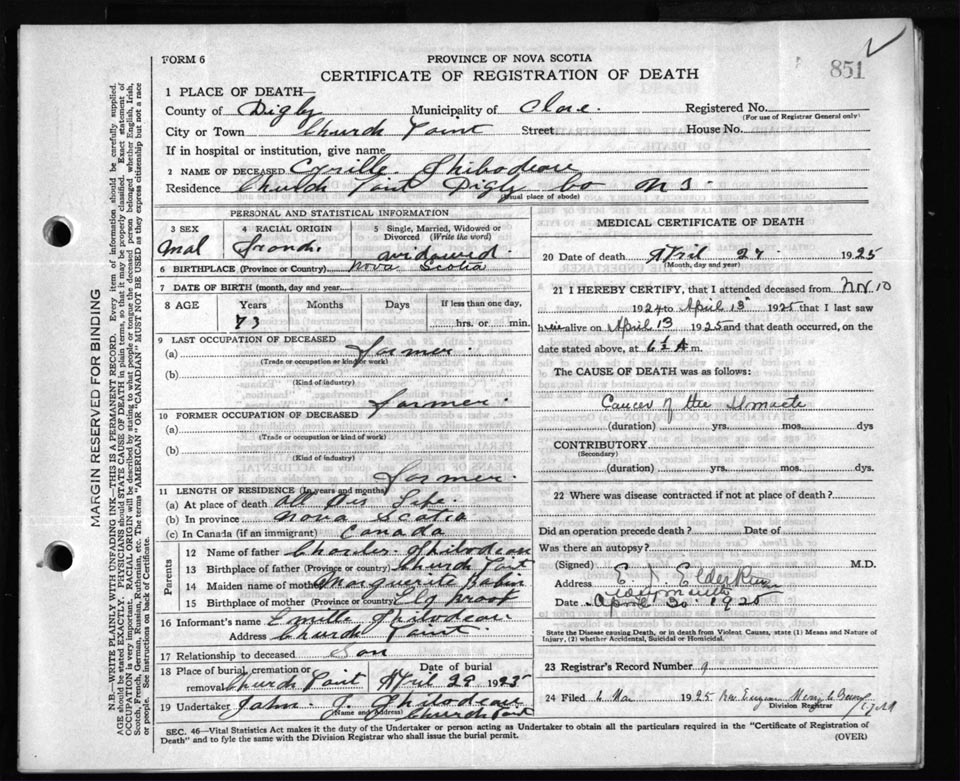 851
FORM 6
PROVINCE OF NOVA SCOTIA
CERTIFICATE OF REGISTRATION OF DEATH
1 PLACE OF DEATH—
County of Digby Municipality of Clare. Registered No.
(For use of Registrar General only)
City or Town Church Point Street House No.
If in hospital or institution, give name
2 NAME OF DECEASED Cyrille Thibodeau
Residence Church Point Digby Co N S.
(Usual place of abode)
PERSONAL AND STATISTICAL INFORMATION
3 SEX
Mal
4 RACIAL ORIGIN
French.
5 Single, Married, Widowed or Divorced (Write the word)
widowed.
6 BIRTHPLACE (Province or Country) Nova Scotia
7 DATE OF BIRTH (month, day and year)
8 AGE Years Months Days If less than one day,
73 hrs. or min.
9 LAST OCCUPATION OF DECEASED
(a) Farmer.
(Trade or occupation or kind of work)
(b)
(Kind of industry)
Farmer.
10 FORMER OCCUPATION OF DECEASED
(a)
(Trade or occupation or kind of work)
(b)
(Kind of industry)
Farmer.
11 LENGTH OF RESIDENCE (In years and months)
(a) At place of death all his Life.
(b) In province Nova Scotia
(c) In Canada (if an immigrant) Canada
Parents
12 Name of father Charles Thibodeau
13 Birthplace of father (Province or country) Church Point
14 Maiden name of mother Marguerite
15 Birthplace of mother (Province or country)
16 Informant's name Emille Thibodeau
Address Church Point.
17 Relationship to deceased Son
18 Place of burial, cremation or removal Church Point Date of burial April 29 1925
19 Undertaker John J. Thibodeau
(Name and address) Church Point
MEDICAL CERTIFICATE OF DEATH
20 Date of death April 27 1925
(Month, day and year)
21 I HEREBY CERTIFY, that I attended deceased from Nov 10
1924 to April 13 1925 that I last saw
him alive on April 13 1925 and that death occurred, on
the date stated above, at 6½ A m.
The CAUSE OF DEATH was as follows:
Cancer of the Stomach
(duration) yrs. mos. dys
CONTRIBUTORY
(Secondary)
(duration) yrs. mos. dys.
22 Where was disease contracted if not at place of death?
Did an operation precede death? Date of
Was there an autopsy?
(Signed) E. J. Elderkin M.D.
Address Weymouth
Date April 30 1925
State the Disease causing Death, or in death from Violent Causes, state (1) Means and Nature of Injury, (2) whether Accidental, Suicidal or Homicidal.
23 Registrar's Record Number 9
24 Filed 6 1925 Rev Eugene
Division Registrar
SEC. 46—Vital Statistics Act makes it the duty of the Undertaker or person acting as Undertaker to obtain all the particulars required in the "Certificate of Registration of
Death" and to fyle the same with the Division Registrar who shall issue the burial permit.
(OVER)
MARGIN RESERVED FOR BINDING
N.B.—WRITE PLAINLY WITH UNFADING INK—THIS IS A PERMANENT RECORD. Every item of information should be carefully supplied.
AGE should be stated EXACTLY. PHYSICIANS should STATE CAUSE OF DEATH in plain terms, so that it may be properly classified. Exact statement of
OCCUPATION is very important. RACIAL ORIGIN will be described by stating to what people or tongue the deceased person belonged whether English, Irish,
Scotch, French, German, Russian, Ruthenian, etc. The terms "AMERICAN" OR "CANADIAN" MUST NOT BE USED as they express citizenship but not a race
or people. See instructions on back of Certificate.